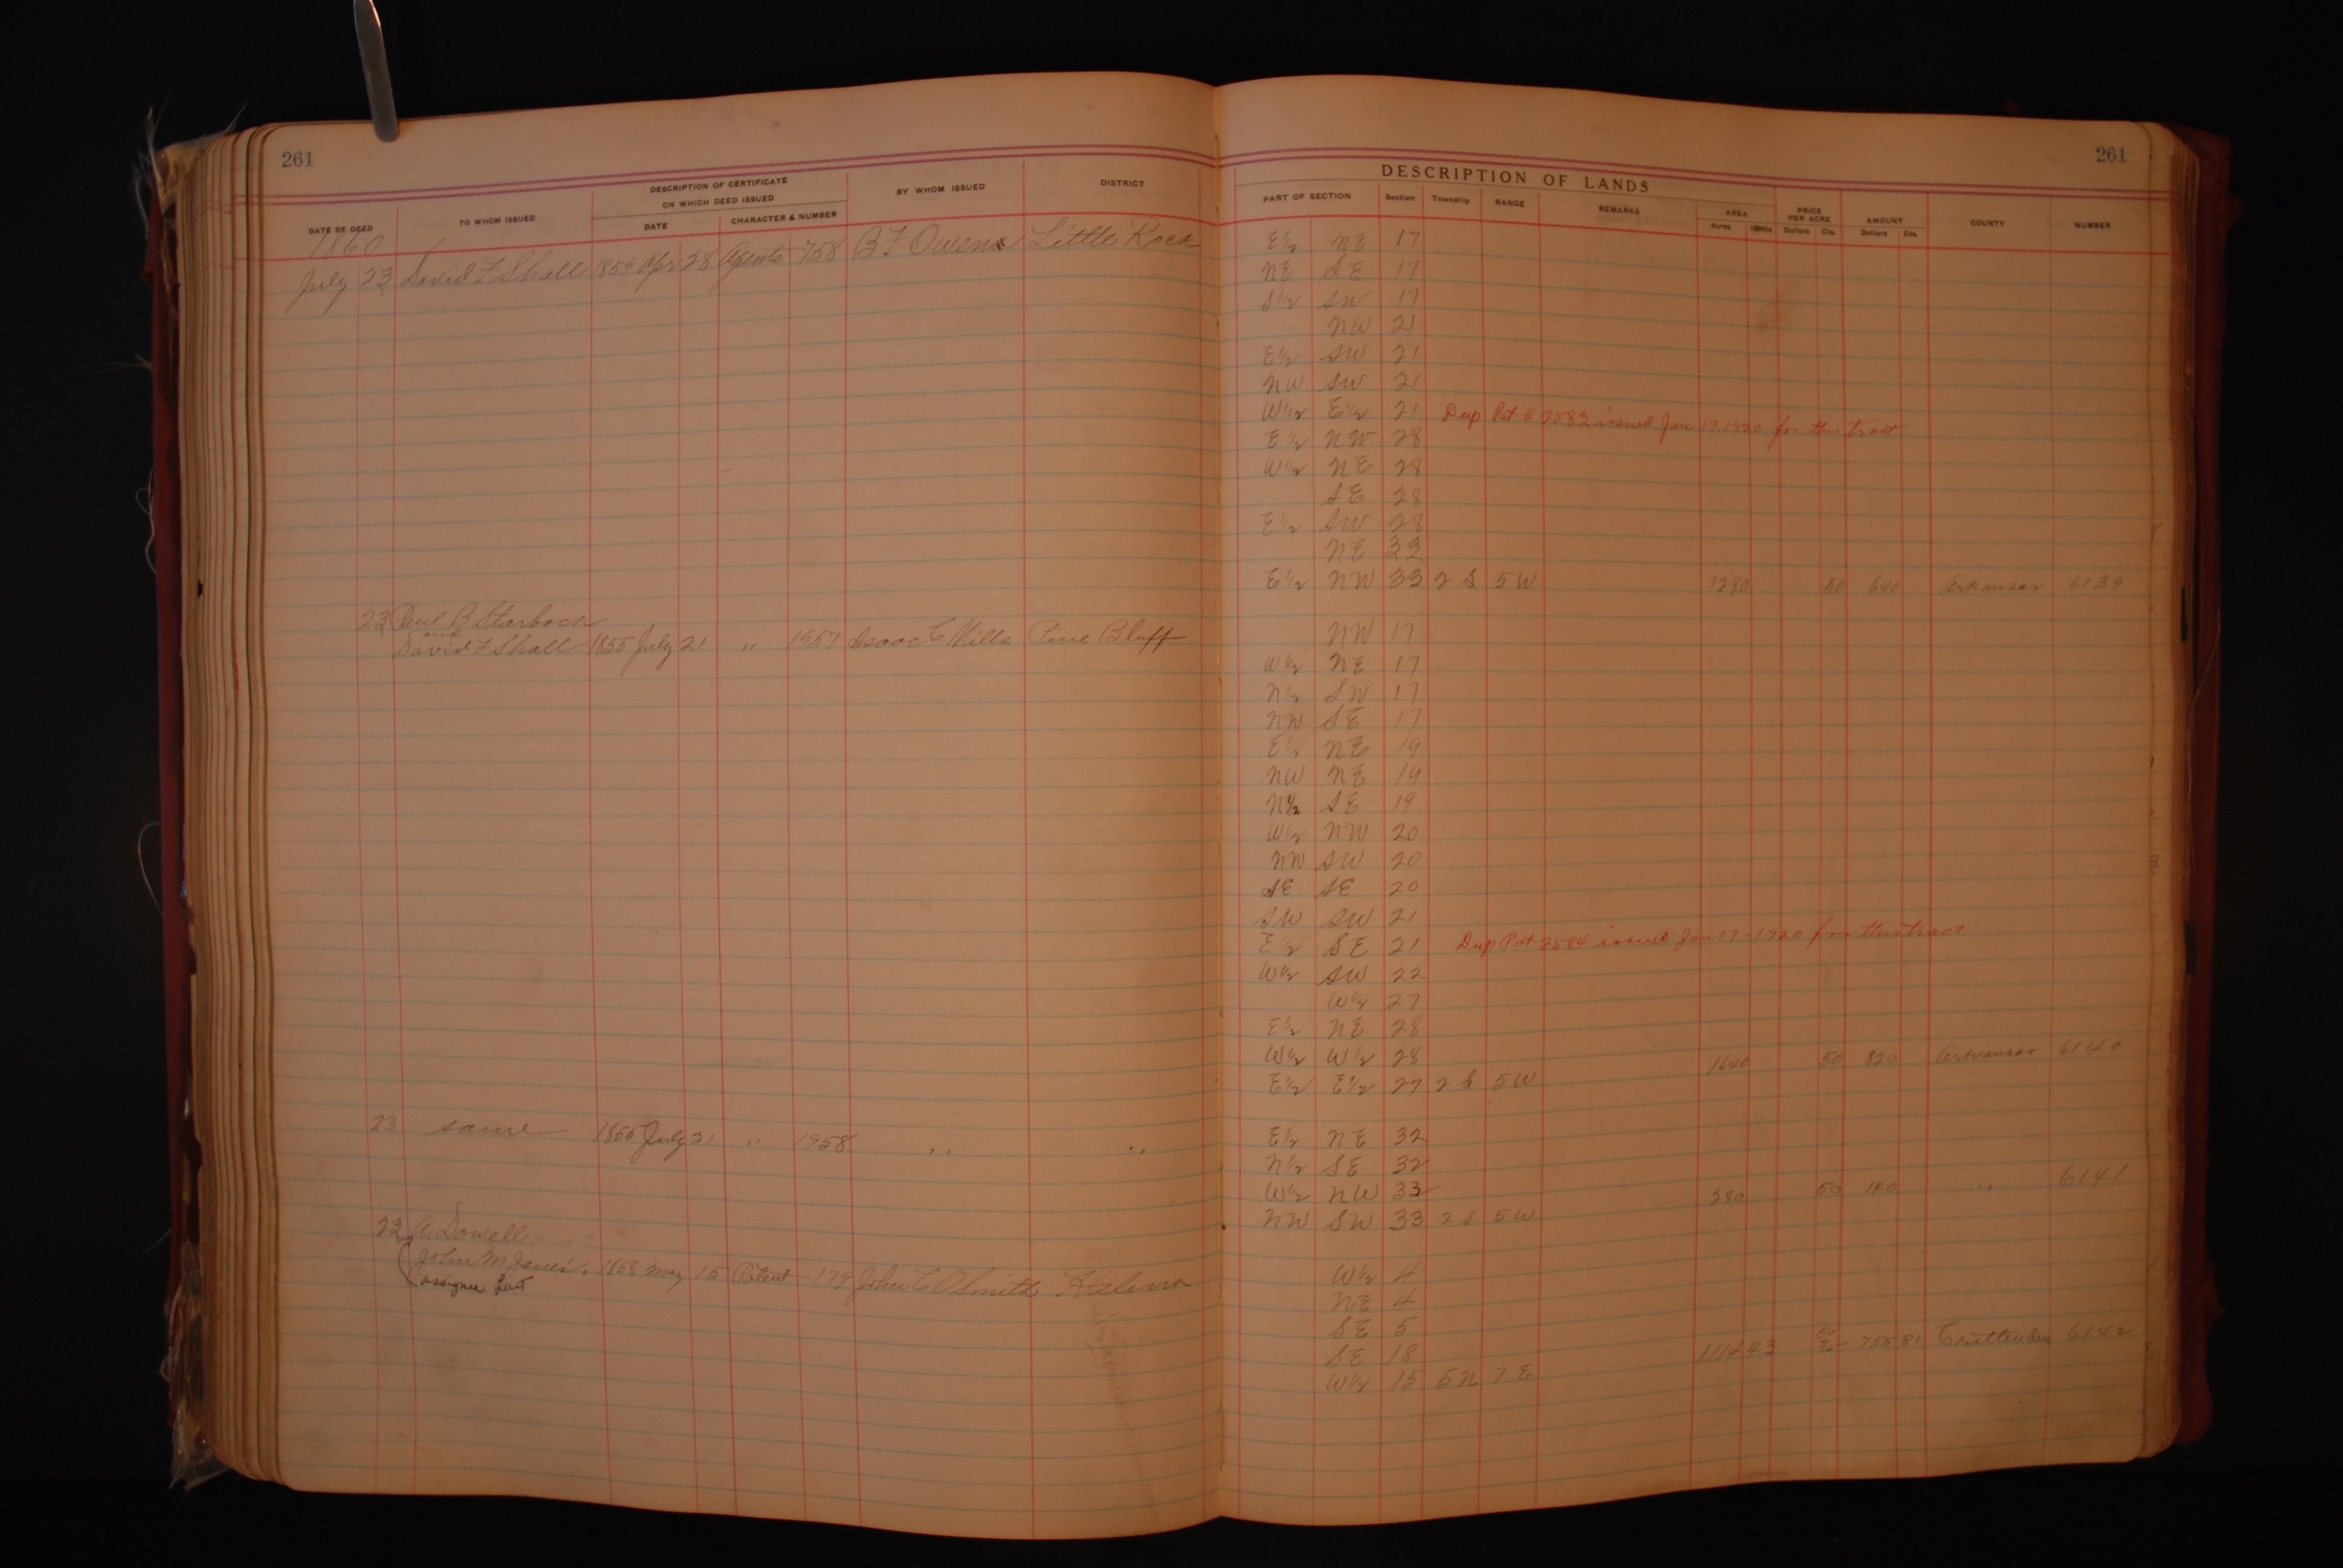 261
DATE OF DEED TO WHOM ISSUED DESCRIPTION OF CERTIFICATE ON WHICH DEED ISSUED DATE CHARACTER & NUMBER BY WHOM ISSUED DISTRICT
1860
July 23 David F Shall 1859 Apr 28 Agents 758 B F Owens Little Rock
23 Paul B Starbock
and
David F Shall 1855 July 21 " 1957 Isaac C Mills Pine Bluff
23 same 1855 July 21 " 1958 " "
23 A. Dowell and
John M James, 1858 May 15 Patent 179 John C O Smith Helena
(assignee part
261
DESCRIPTION OF LANDS
PART OF SECTION Section Township RANGE REMARKS AREA Acres 100ths PRICE PER ACRE Dollars Cts. AMOUNT Dollars Cts. COUNTY NUMBER
E½ NE 17
NE SE 17
S½ SW 17
NW 21
E½ SW 21
NW SW 21
W½ E½ 21 Dup Pat # 2583 issued Jan 17, 1920 for this tract
E½ NW 28
W½ NE 28
SE 28
E½ SW 28
NE 33
E½ NW 33 2 S 5 W 1280 50 640 Arkansas 6139
NW 17
W½ NE 17
N½ SW 17
NW SE 17
E½ NE 19
NW NE 19
N½ SE 19
W½ NW 20
NW SW 20
SE SE 20
SW SW 21
E½ SE 21 Dup Pat 2584 issued Jan 17-1920 for this tract
W½ SW 22
W½ 27
E½ NE 28
W½ W½ 28 1640 50 820 Arkansas 6140
E½ E½ 29 2 S 5 W
E½ NE 32
N½ SE 32
W½ NW 33 280 50 140 " 6141
NW SW 33 2 S 5 W
W½ 4
NE 4
SE 5
SE 18 1114 43 50 755 81 Crittenden 6142
W½ 15 5 N 7 E